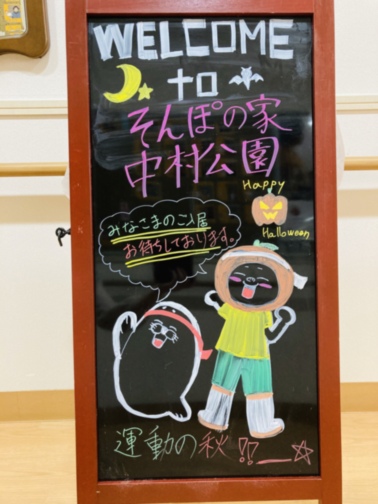 WELCOME
to
そんぽの家
中村公園
Happy
Halloween
みなさまのご入居
お待ちしております。
運動の秋!!